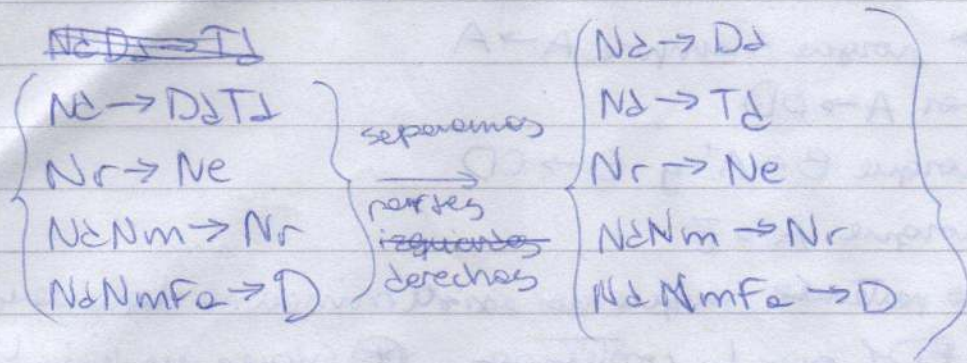 NdDd→Td
Nd→DdTd
Nr→Ne
NdNm→Nr
NdNmFe→D
separamos
→
partes
izquierdas
derechas
Nd→Dd
Nd→Td
Nr→Ne
NdNm→Nr
NdNmFe→D